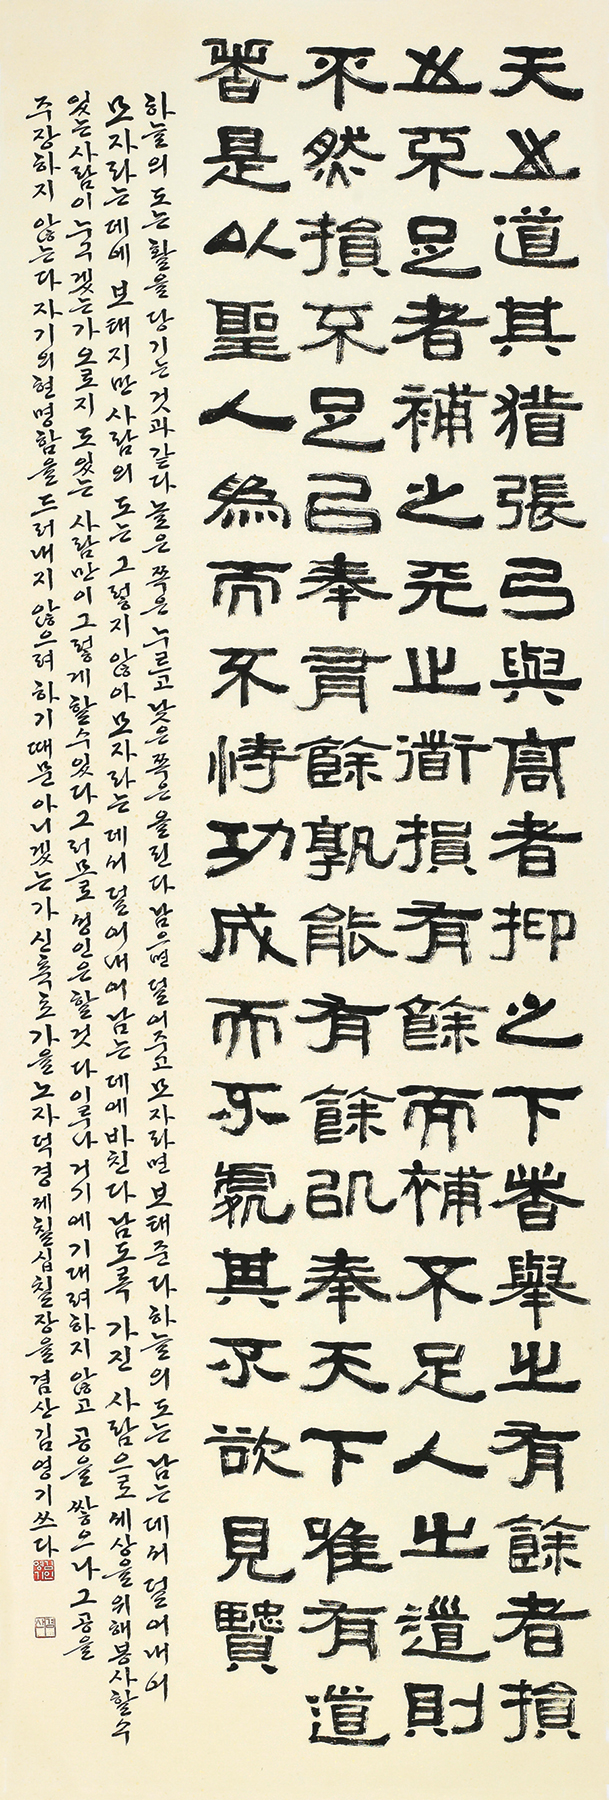 天之道其猶張弓與高者抑之下者舉之有餘者損
之不足者補之天之道損有餘而補不足人之道則
不然損不足以奉有餘孰能有餘以奉天下唯有道
者是以聖人爲而不恃功成而不處其不欲見賢
하늘의 도는 활을 당기는 것과 같다 높은 쪽은 누르고 낮은 쪽은 올린다 남으면 덜어주고 모자라면 보태준다 하늘의 도는 남는 데서 덜어내어
모자라는 데에 보태지만 사람의 도는 그렇지 않아 모자라는 데서 덜어내어 남는 데에 바친다 남도록 가진 사람으로 세상을 위해 봉사할 수
있는 사람이 누구겠는가 오로지 도 있는 사람만이 그렇게 할 수 있다 그러므로 성인은 할 것 다 이루나 거기에 기대려 하지 않고 공을 쌓으나 그 공을
주장하지 않는다 자기의 현명함을 드러내지 않으려 하기 때문 아니겠는가 신축초가을 노자덕경제칠십칠장을 겸산 김영기 쓰다